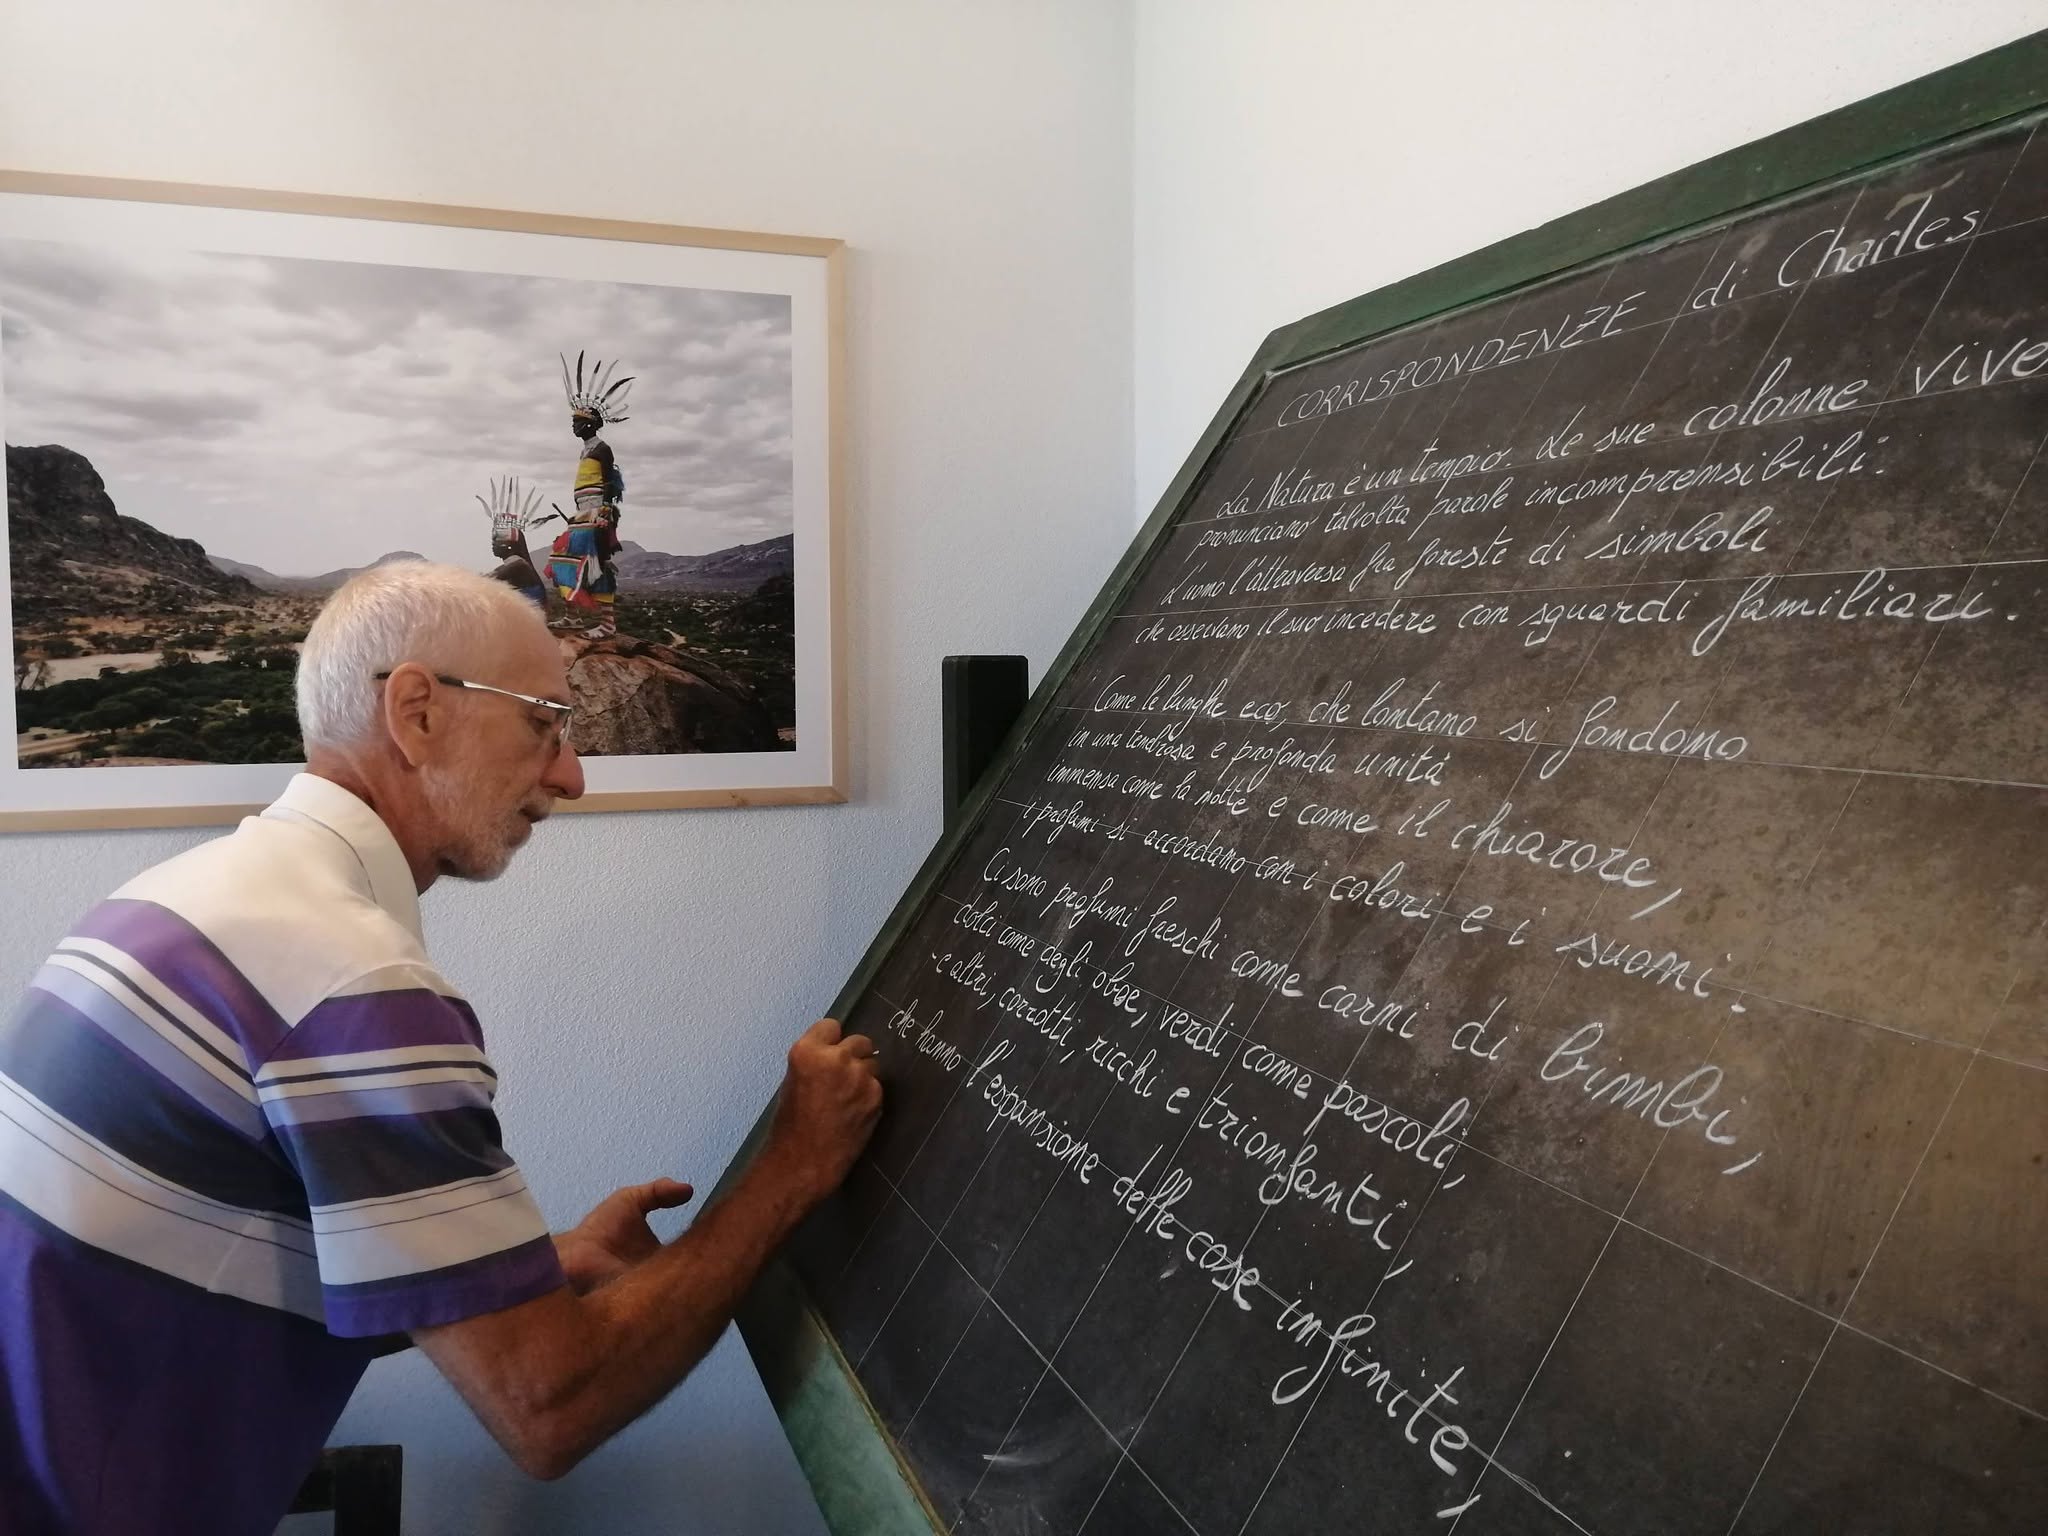 CORRISPONDENZE di Charles
La Natura è un tempio. Le sue colonne vive
pronunciano talvolta parole incomprensibili:
L'uomo l'attraversa fra foreste di simboli
che osservano il suo incedere con sguardi familiari.
Come le lunghe eco, che lontano si fondono
in una tenebrosa e profonda unità
immensa come la notte e come il chiarore,
i profumi si accordano con i colori e i suoni.
Ci sono profumi freschi come carni di bimbi,
dolci come degli oboe, verdi come pascoli,
- e altri, corrotti, ricchi e trionfanti,
che hanno l'espansione delle cose infinite,